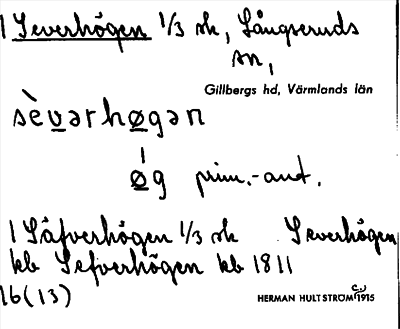 1 Severhögen 1/3 sk, Långseruds
sn,
Gillbergs hd, Värmlands län
sèvərhøgən
øg prim.-ant.
1 Säfverhögen 1/3 sk Severhögen
kb Sefverhögen kb 1811
16(13)
HERMAN HULTSTRÖM 1915